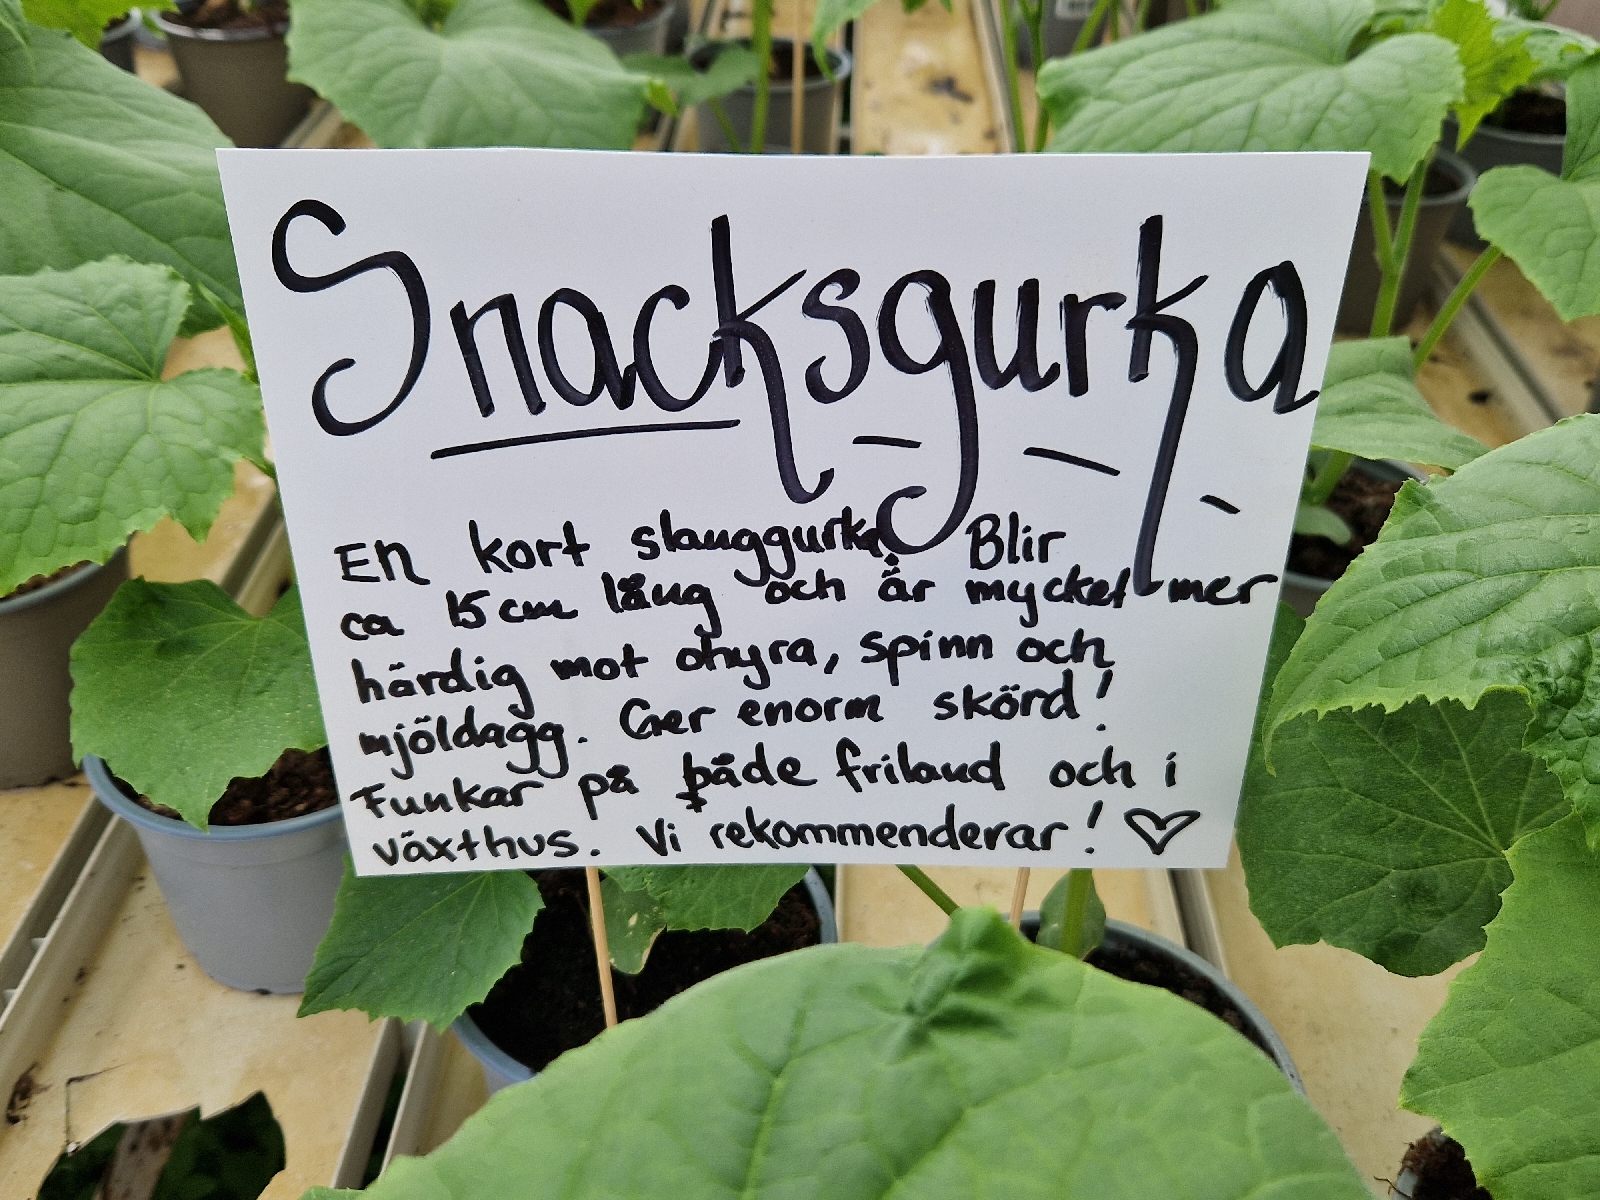 Snacksgurka
En kort slanggurka. Blir
ca 15cm lång och är mycket mer
härdig mot ohyra, spinn och
mjöldagg. Ger enorm skörd!
Funkar på både friland och i
växthus. Vi rekommenderar! ♡